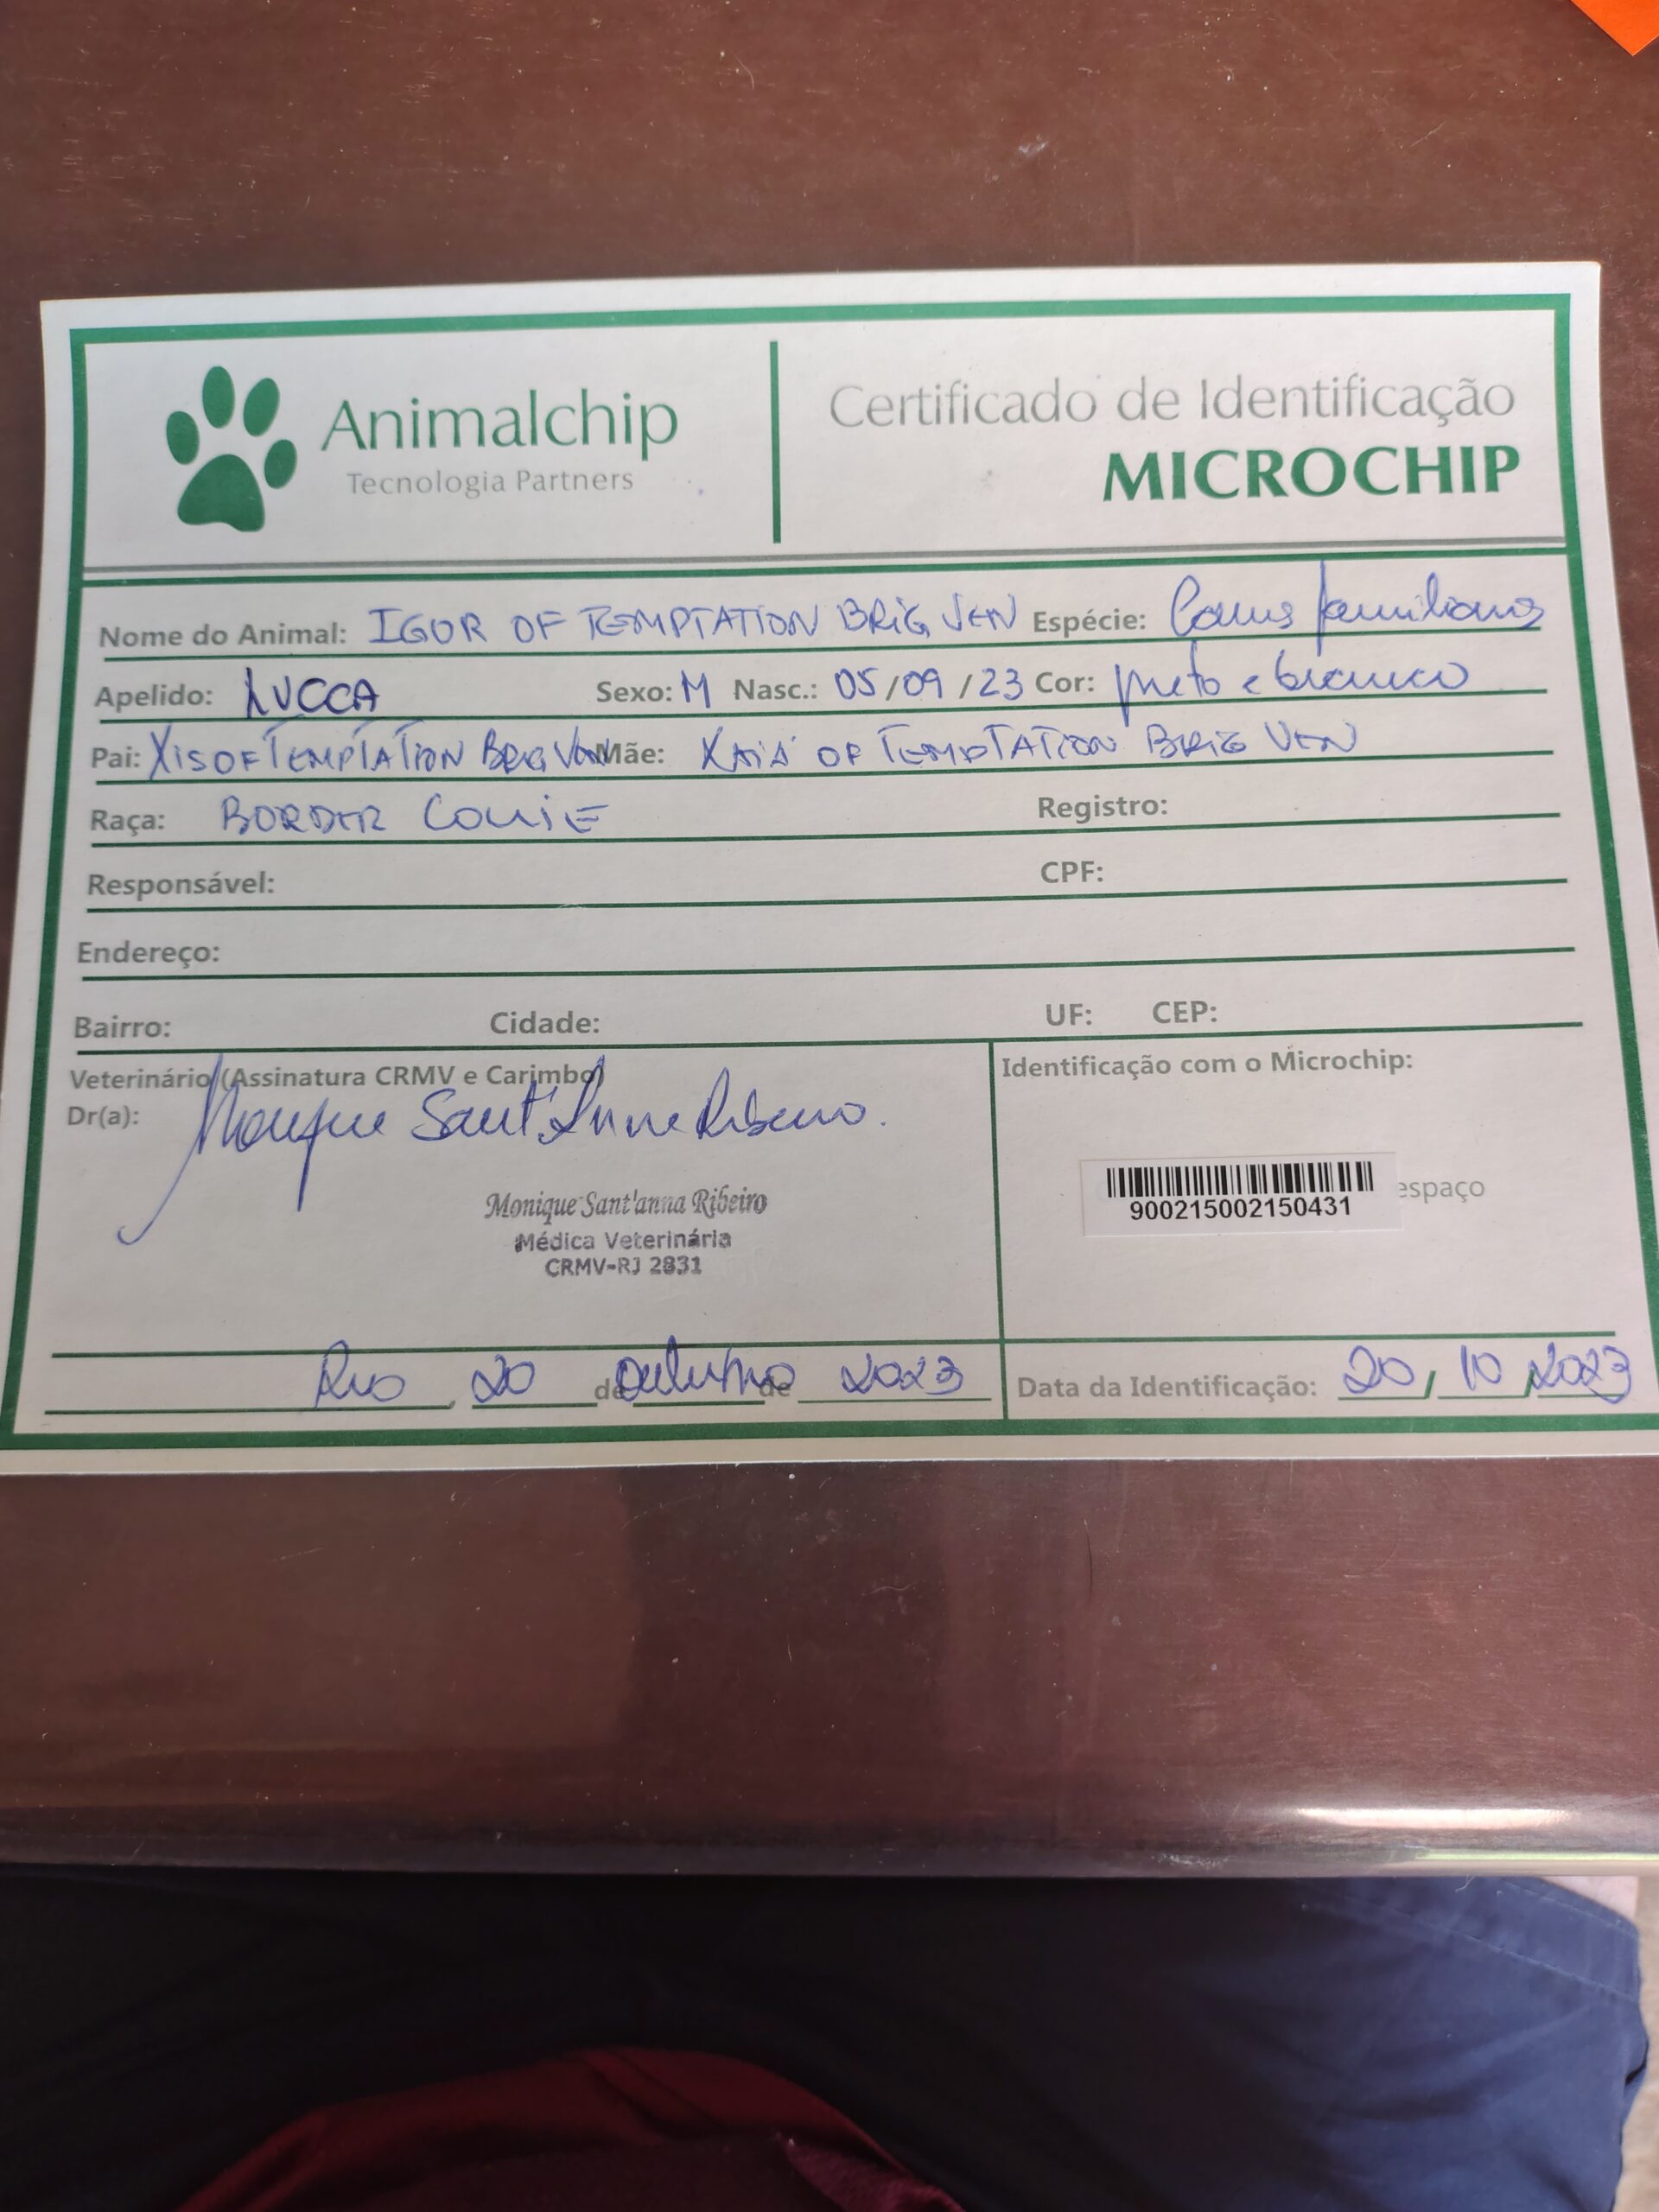 Animalchip
Tecnologia Partners
Certificado de Identificação
MICROCHIP
Nome do Animal: IGOR OF TEMPTATION BRIG VEN Espécie: Canis familiaris
Apelido: LUCCA Sexo: M Nasc.: 05/09/23 Cor: preto e branco
Pai: XIS OF TEMPTATION BRIG VEN Mãe: OF TEMPTATION BRIG VEN
Raça: BORDER COLLIE Registro:
Responsável: CPF:
Endereço:
Bairro: Cidade: UF: CEP:
Veterinário (Assinatura CRMV e Carimbo)
Dr(a): Monique Sant'Anna Ribeiro.
Monique Sant'anna Ribeiro
Médica Veterinária
CRMV-RJ 2831
Identificação com o Microchip:
espaço
900215002150431
Rio, 20 de outubro de 2023
Data da Identificação: 20/10/2023